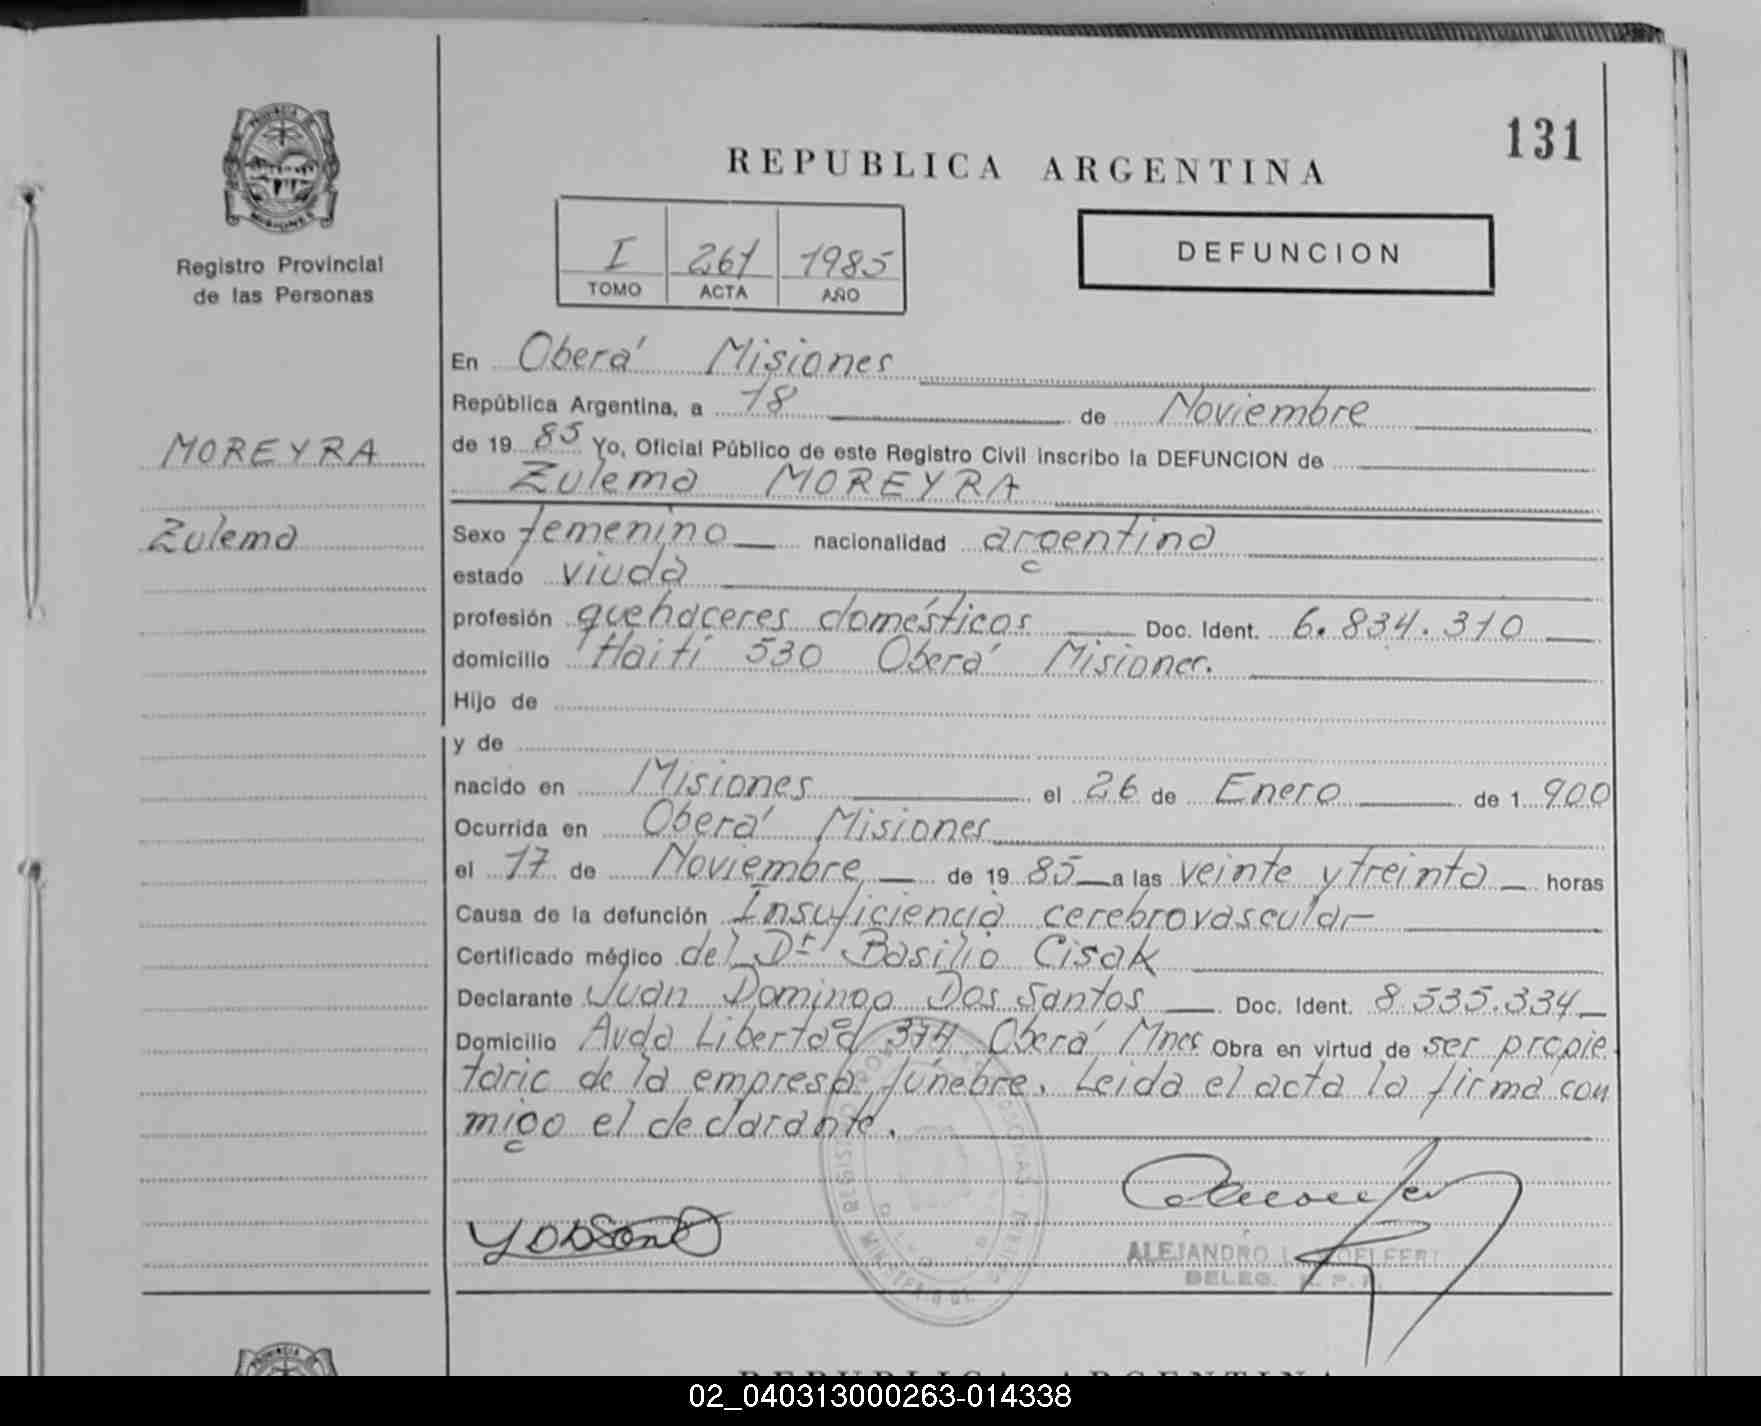 131
REPUBLICA ARGENTINA
PROVINCIA DE
MISIONES
Registro Provincial
de las Personas
I 261 1985
TOMO ACTA AÑO
DEFUNCION
En Oberá Misiones
República Argentina, a 18 de Noviembre
MOREYRA
de 19 85 Yo, Oficial Público de este Registro Civil inscribo la DEFUNCION de
Zulema MOREYRA
Zulema
Sexo femenino nacionalidad argentina
estado viuda
profesión quehaceres domésticos Doc. Ident. 6.834.310
domicilio Haití 530 Oberá Misiones.
Hijo de
y de
nacido en Misiones el 26 de Enero de 1 900
Ocurrida en Oberá Misiones
el 17 de Noviembre de 19 85 a las veinte y treinta horas
Causa de la defunción Insuficiencia cerebrovascular
Certificado médico del Dr Basilio Cisak
Declarante Juan Domingo Dos Santos Doc. Ident. 8.535.334
Domicilio Avda Libertad 374 Oberá Mnes Obra en virtud de ser propie
tario de la empresa fúnebre. Leida el acta la firma con
migo el declarante.
ALEJANDRO
DELEG.
PROVINCIA
REPUBLICA ARGENTINA
02_040313000263-014338